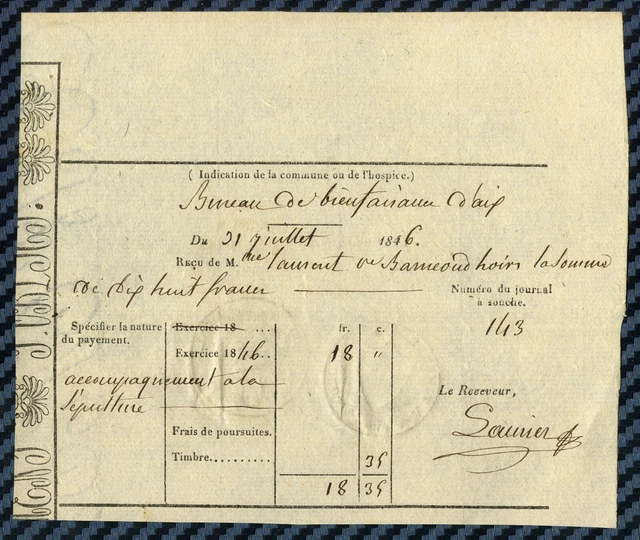 ( Indication de la commune ou de l'hospice.)
Bureau de bienfaisance d'aix
Du 31 juillet 1846.
Reçu de M. me Laurent ve Barneoud hoirs la somme
de dix huit francs
Numéro du journal
à souche.
143
Spécifier la nature
du payement.
accompagnement a la
sépulture
Exercice 18 ...
fr. c.
Exercice 1846.. 18 "
Frais de poursuites.
Timbre.......... 35
18 35
Le Receveur,
Saunier